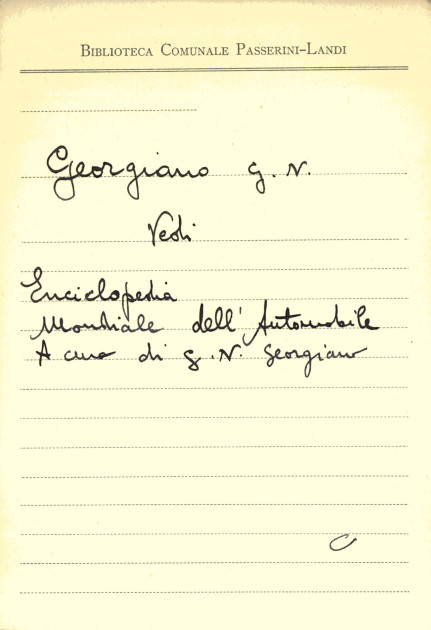 BIBLIOTECA COMUNALE PASSERINI-LANDI
Georgiano G. N.
Vedi
Enciclopedia
Mondiale dell'Automobile
A cura di G. N. Georgiano
C